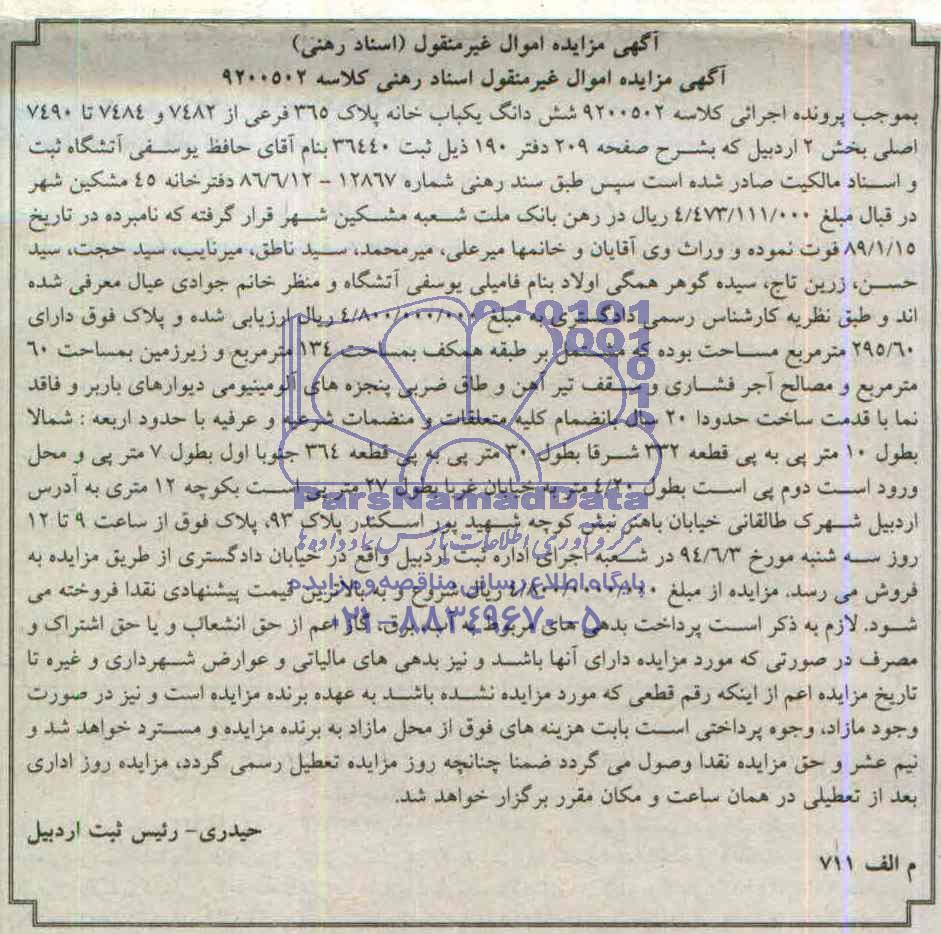 آگهی مزایده اموال غیرمنقول (اسناد رهنی)
آگهی مزایده اموال غیرمنقول اسناد رهنی کلاسه ۹۲۰۰۵۰۲
بموجب پرونده اجرائی کلاسه ۹۲۰۰۵۰۲ شش دانگ یکباب خانه پلاک ۳۶۵ فرعی از ۷۴۸۲ و ۷۴۸۴ تا ۷۴۹۰
اصلی بخش ۲ اردبیل که بشرح صفحه ۲۰۹ دفتر ۱۹۰ ذیل ثبت ۳۶۴۴۰ بنام آقای حافظ یوسفی آتشگاه ثبت
و اسناد مالکیت صادر شده است سپس طبق سند رهنی شماره ۱۲۸۶۷ - ۸۶/۶/۱۲ دفترخانه ۴۵ مشکین شهر
در قبال مبلغ ۴/۴۷۳/۱۱۱/۰۰۰ ریال در رهن بانک ملت شعبه مشکین شهر قرار گرفته که نامبرده در تاریخ
۸۹/۱/۱۵ فوت نموده و وراث وی آقایان و خانمها میرعلی، میرمحمد، سید ناطق، میرنایب، سید حجت، سید
حسن، زرین تاج، سیده گوهر همگی اولاد بنام فامیلی یوسفی آتشگاه و منظر خانم جوادی عیال معرفی شده
اند و طبق نظریه کارشناس رسمی دادگستری به مبلغ ۴/۸۰۰/۰۰۰/۰۰۰ ریال ارزیابی شده و پلاک فوق دارای
۲۹۵/۶۰ مترمربع مساحت بوده که مشتمل بر طبقه همکف بمساحت ۱۳۴ مترمربع و زیرزمین بمساحت ۶۰
مترمربع و مصالح آجر فشاری و سقف تیر آهن و طاق ضربی پنجزه های آلومینیومی دیوارهای باربر و فاقد
نما با قدمت ساخت حدودا ۲۰ سال بانضمام کلیه متعلقات و منضمات شرعیه و عرفیه با حدود اربعه : شمالا
بطول ۱۰ متر پی به پی قطعه ۳۳۲ شرقا بطول ۳۰ متر پی به پی قطعه ۳۶۴ جنوبا اول بطول ۷ متر پی و محل
ورود است دوم پی است بطول ۴/۲۰ متر به خیابان غربا بطول ۲۷ متر پی است بکوچه ۱۲ متری به آدرس
ParsNamadData
اردبیل شهرک طالقانی خیابان باهنر نبش کوچه شهید پور اسکندر پلاک ۹۳، پلاک فوق از ساعت ۹ تا ۱۲
مرکز فرآوری اطلاعات پارس نماد داده‌ها
روز سه شنبه مورخ ۹۴/۶/۳ در شعبه اجرای اداره ثبت اردبیل واقع در خیابان دادگستری از طریق مزایده به
پایگاه اطلاع رسانی مناقصه و مزایده
فروش می رسد. مزایده از مبلغ ۴/۸۰۰/۰۰۰/۰۰۰ ریال شروع و به بالاترین قیمت پیشنهادی نقدا فروخته می
۰۲۱-۸۸۳۴۹۶۷۰-۵
شود. لازم به ذکر است پرداخت بدهی های مربوط به آب، برق، گاز اعم از حق انشعاب و یا حق اشتراک و
مصرف در صورتی که مورد مزایده دارای آنها باشد و نیز بدهی های مالیاتی و عوارض شهرداری و غیره تا
تاریخ مزایده اعم از اینکه رقم قطعی که مورد مزایده نشده باشد به عهده برنده مزایده است و نیز در صورت
وجود مازاد، وجوه پرداختی است بابت هزینه های فوق از محل مازاد به برنده مزایده و مسترد خواهد شد و
نیم عشر و حق مزایده نقدا وصول می گردد ضمنا چنانچه روز مزایده تعطیل رسمی گردد، مزایده روز اداری
بعد از تعطیلی در همان ساعت و مکان مقرر برگزار خواهد شد.
حیدری- رئیس ثبت اردبیل
م الف ۷۱۱